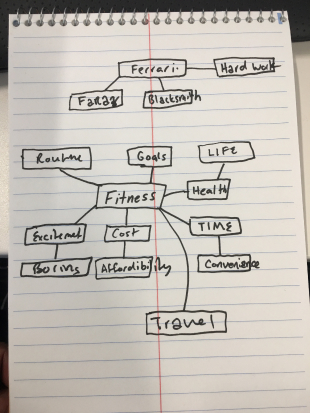 Ferrari
Hard work
Faraz
Blacksmith
Routine
Goals
LIFE
Health
Fitness
Excitemet
Cost
TIME
Boring
Affordibility
Convenience
Travel